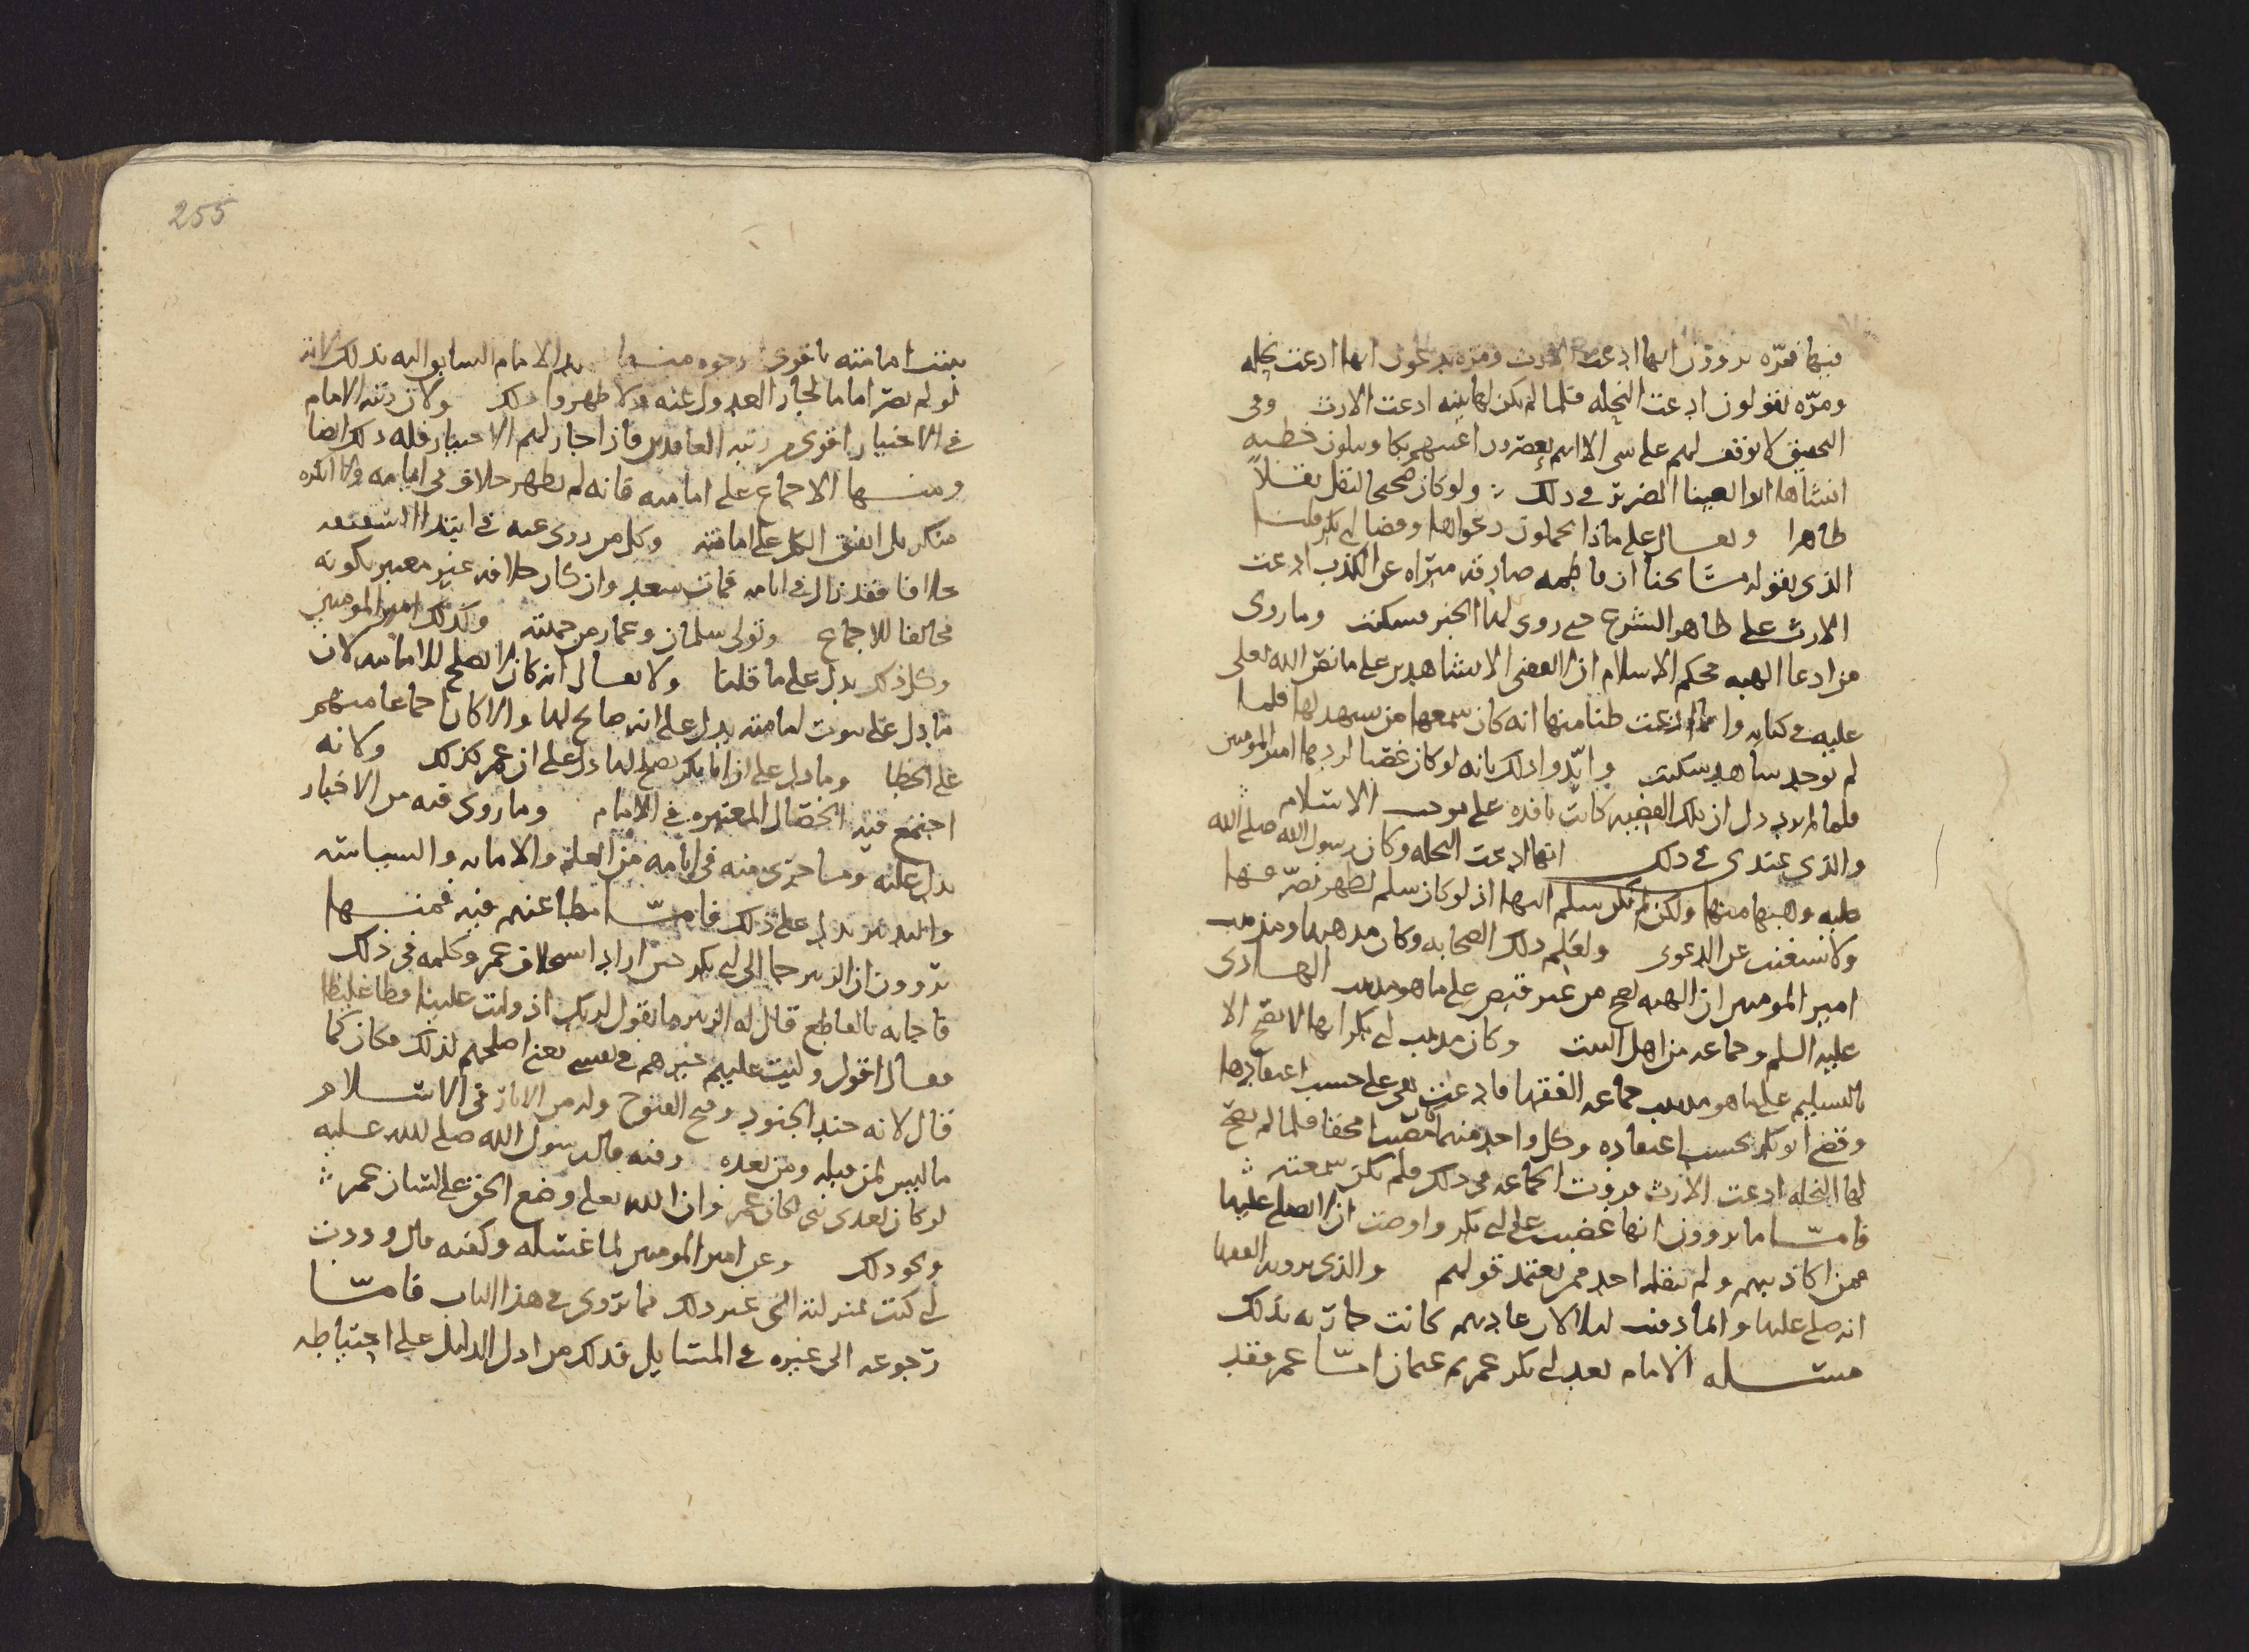 فيها فمرّه يروون انها ادعت الارث ومره يدعون انها ادعت نحله
ومرّه يقولون ادعت النحله فلما لم يكن لها بينه ادعت الارث وفى
التحقيق لا نوقف لهم على شى الا انهم يعصرون اعينهم بكا ويتلون خطبه
انشاها ابو العينا الضرير فى ذلك ولو كان صحيحا لنقل نقلاً
ظاهرا ويقال على ماذا تحملون دعواها وقضا ابى بكر قلنا
الذى يقوله مشائخنا ان فاطمه صادقه مبرّاه عن الكذب ادعت
الارث على ظاهر الشرع حتى روى لها الخبر فسكتت وما روى
من ادعا الهبه فحكم الاسلام ان لا يقضى الا بشاهدين على ما نص الله تعلى
عليه فى كتابه وانما ادعت ظنا منها انه كان سمعها من يشهد لها فلما
لم يوجد شاهد سكتت وايّدوا ذلك بانه لو كان غصبا لردها امير المومنين
فلما لم يرد دل ان تلك القضيه كانت نافذه على موجب الاسلام
والذى عندى فى ذلك انها ادعت النحله وكان رسول الله صلى الله
عليه وهبها منها ولكن لم يكن سلم اليها اذ لو كان سلم لظهر تصرّفها
ولاستغنت عن الدعوى ولعلم ذلك الصحابه وكان مذهبها ومذهب
امير المومنين ان الهبه تصح من غير قبض على ما هو مذهب الهادى
عليه السلم وجماعه من اهل البيت وكان مذهب ابى بكر انها لا تصح الا
بالتسليم على ما هو مذهب جماعه الفقها فادعت هى على حسب اعتقادها
وقضى ابو بكر بحسب اعتقاده وكل واحد منهما كان مصيبا محقا فلما لم يصح
لها النحله ادعت الارث فروت الجماعه فى ذلك فلم تكن سمعته
فامّا ما يروون انها غضبت على ابى بكر واوصت ان لا يصلى عليها
فمن اكاذيبهم ولم ينقله احد ممن يعتمد قولهم والذى يرويه الفقها
انه صلى عليها وانما دفنت ليلا لان عادتهم كانت جاريه بذلك
مسئله الامام بعد ابى بكر عمر ثم عثمان امّا عمر فقد
255
يثبت امامته باقوى وجوه منها نص الامام السابق اليه بذلك لانه
لو لم يصر اماما لجاز العدول عنه ولاظهروا ذلك ولان رتبه الامام
فى الاختيار اقوى من رتبه العاقدين فاذا جاز لهم الاختيار فله ذلك ايضا
ومنها الاجماع على امامته فانه لم يظهر خلاف فى ايامه ولا انكره
منكر بل اتفق الكل على امامته وكل من روى عنه فى ابتدا السقيفه
خلافا فقد زال فى ايامه فمات سعد وان كان خلافه غير معتبر لكونه
مخالفا للاجماع وتولى سلمان وعمار من جهته وكذلك امير المومنين
وكل ذلك يدل على ما قلنا ولا يقال انه كان لا يصلح للامامه لان
ما دل على ثبوت امامته يدل على انه صالح لها والا كان اجماعا منهم
على الخطا وما دل على ان ابا بكر يصلح لها دل على ان عمر كذلك ولانه
اجتمع فيه الخصال المعتبره فى الامام وما روى فيه من الاخبار
يدل عليه وما جرى منه فى ايامه من العلم والامانه والسياسه
والتدبير يدل على ذلك فامّا مطاعنهم فيه فمنها
يروون ان الزبير جا الى ابى بكر حين اراد استخلاف عمر وكلمه فى ذلك
فاجابه بالقاطع قال له الزبير ما تقول لربك اذ وليت علينا فظا غليظا
فقال اقول وليت عليهم خيرهم فى نفسى يعنى اصلحهم لذلك فكان كما
قال لانه جند الجنود وفتح الفتوح وله من الاثار فى الاسلام
ما ليس لمن قبله ومن بعده وفيه قال رسول الله صلى الله عليه
لو كان بعدى نبى لكان عمر وان الله تعلى وضع الحق على لسان عمر
ونحو ذلك وعن امير المومنين لما غسله وكفنه قال وددت
انى كنت بمنزلته الى غير ذلك مما يروى فى هذا الباب فامّا
رجوعه الى غيره فى المسايل فذلك من ادل الدليل على احتياطه